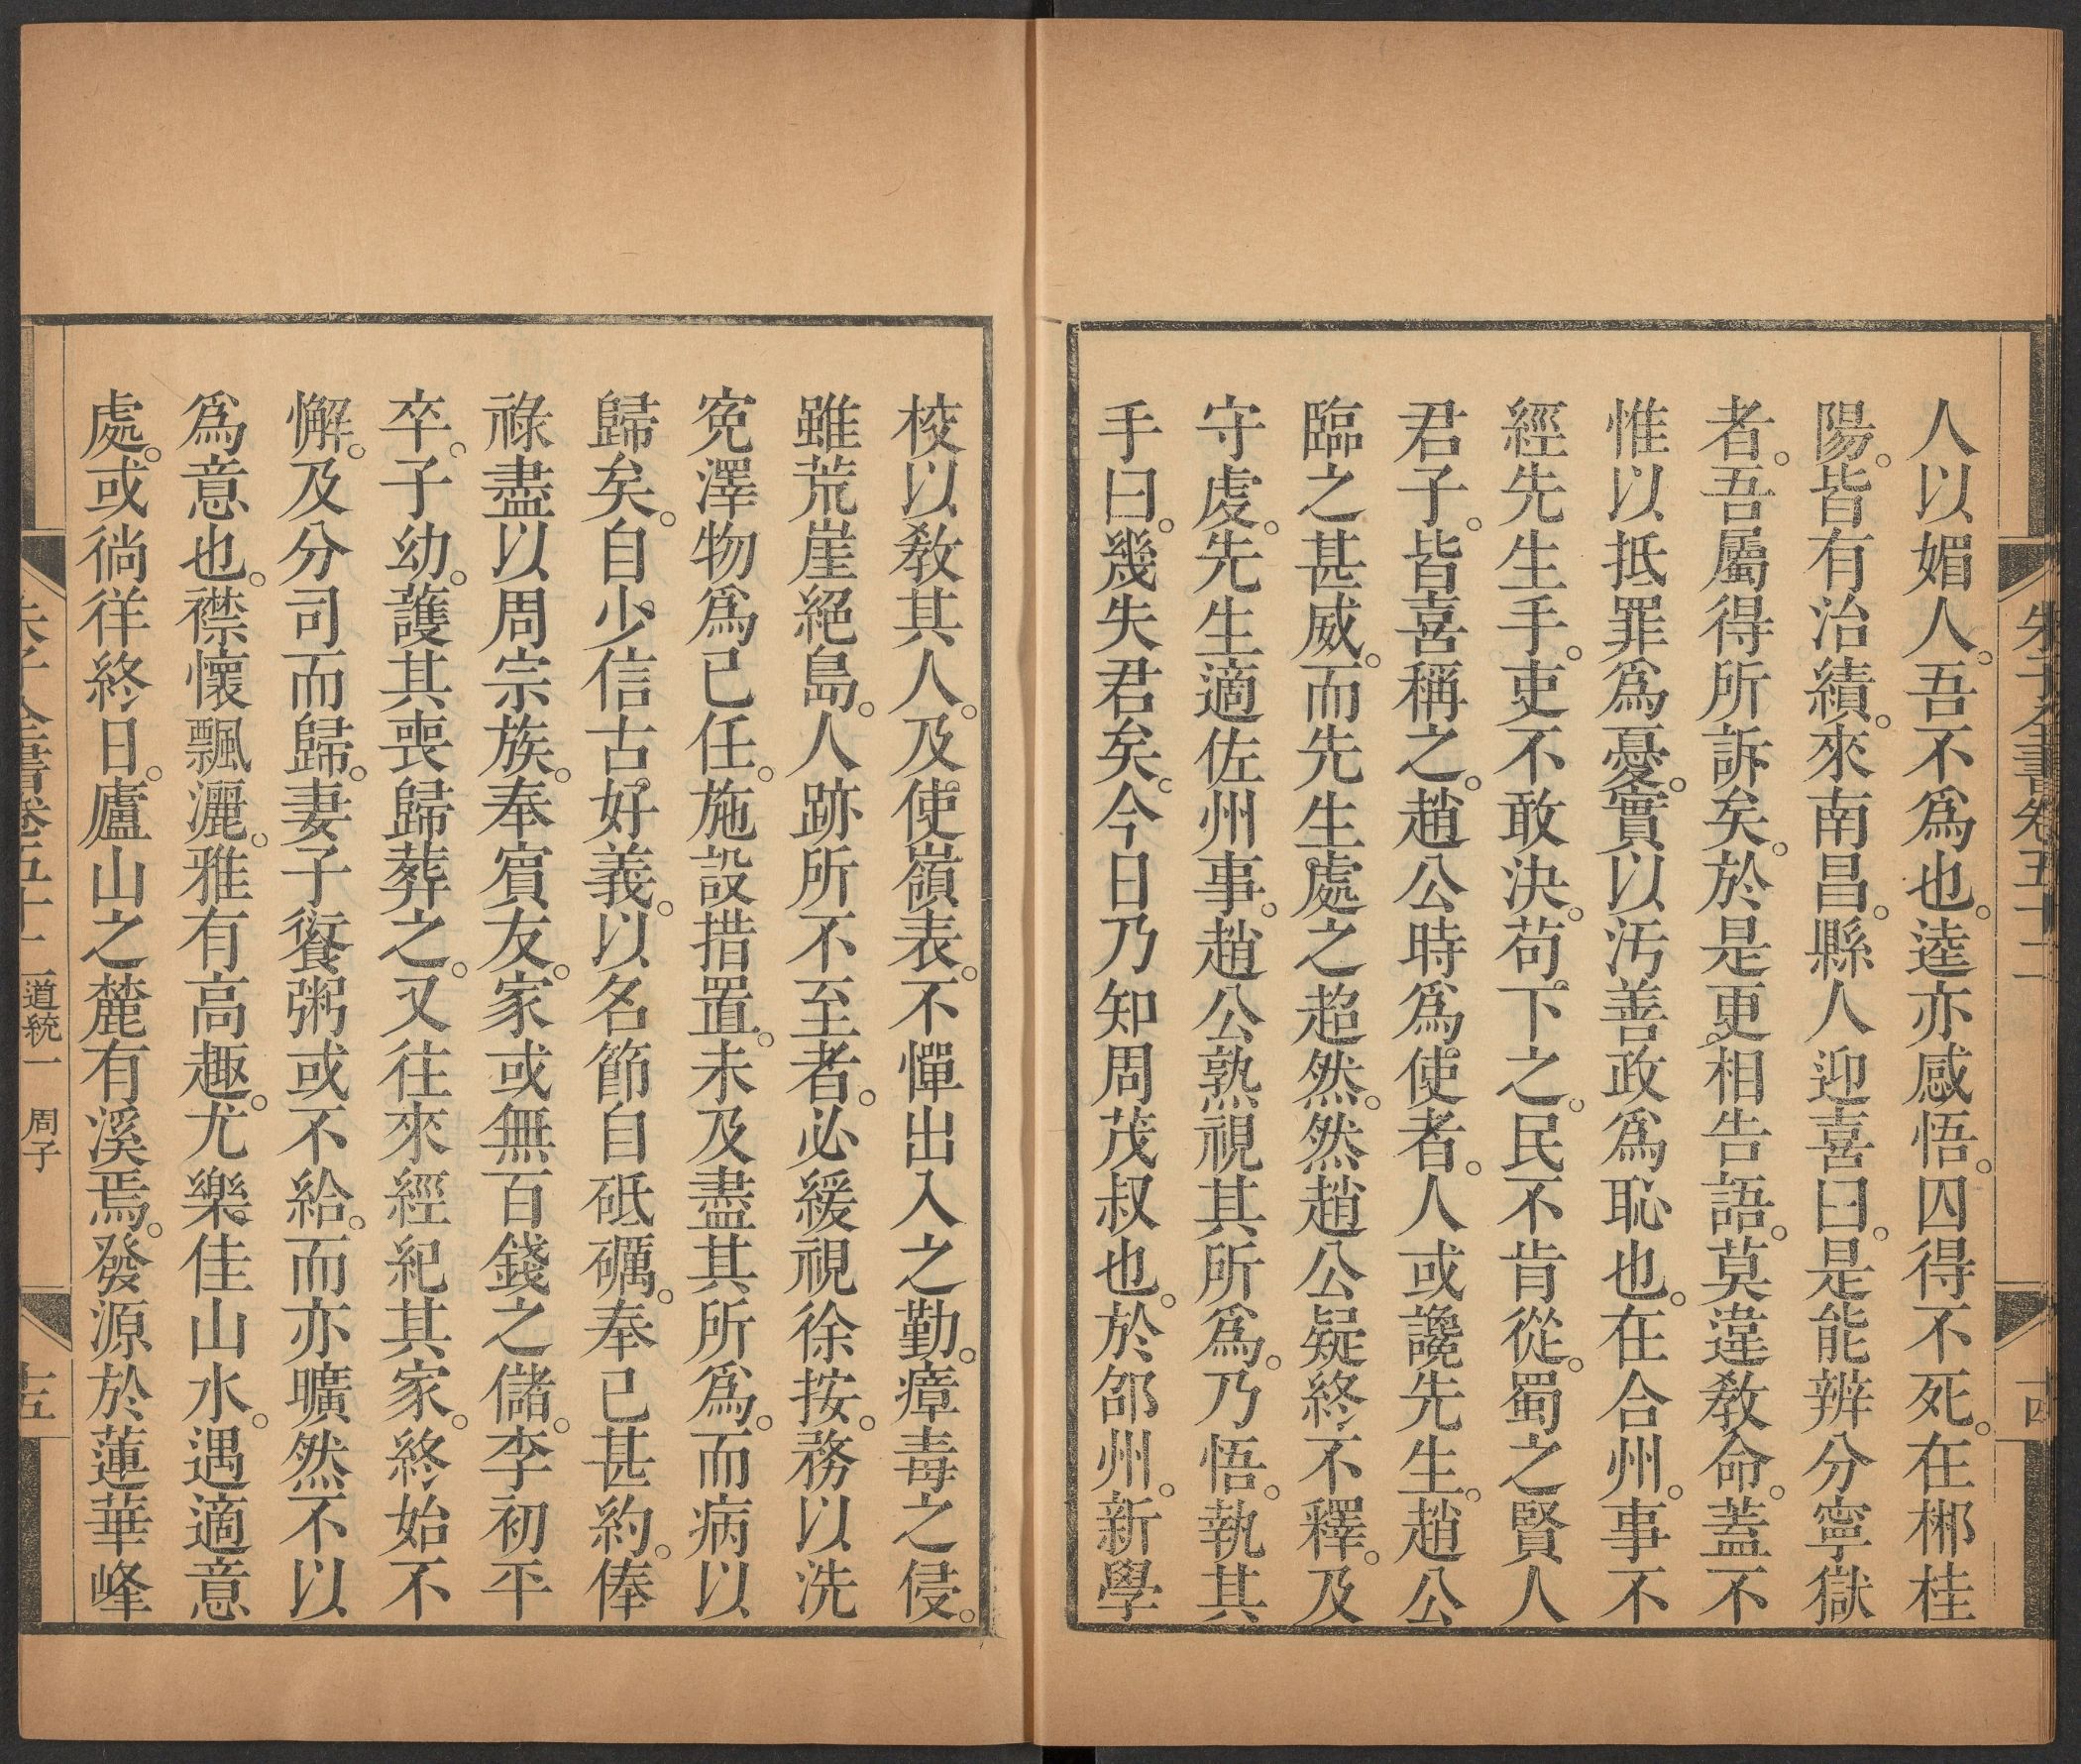 朱子全書卷五十二
十四
人以媚人。吾不爲也。逵亦感悟。囚得不死。在郴桂
陽。皆有治績。來南昌。縣人迎喜曰。是能辨分寧獄
者。吾屬得所訴矣。於是更相告語。莫違敎命。蓋不
惟以抵罪爲憂。實以汚善政爲恥也。在合州。事不
經先生手。吏不敢決。苟下之。民不肯從。蜀之賢人
君子。皆喜稱之。趙公時爲使者。人或讒先生。趙公
臨之甚威。而先生處之超然。然趙公疑終不釋。及
守虔。先生適佐州事。趙公熟視其所爲。乃悟。執其
手曰。幾失君矣。今日乃知周茂叔也。於邵州。新學
校以敎其人。及使嶺表。不憚出入之勤。瘴毒之侵。
雖荒崖絕島。人跡所不至者。必緩視徐按。務以洗
寃澤物爲己任。施設措置。未及盡其所爲。而病以
歸矣。自少信古好義。以名節自砥礪。奉己甚約。俸
祿盡以周宗族。奉賓友。家或無百錢之儲。李初平
卒。子幼。護其喪歸葬之。又往來經紀其家。終始不
懈。及分司而歸。妻子饘粥或不給。而亦曠然不以
爲意也。襟懷飄灑。雅有高趣。尤樂佳山水。遇適意
處。或徜徉終日。廬山之麓有溪焉。發源於蓮華峰
朱子全書卷五十二 道統一 周子
十五